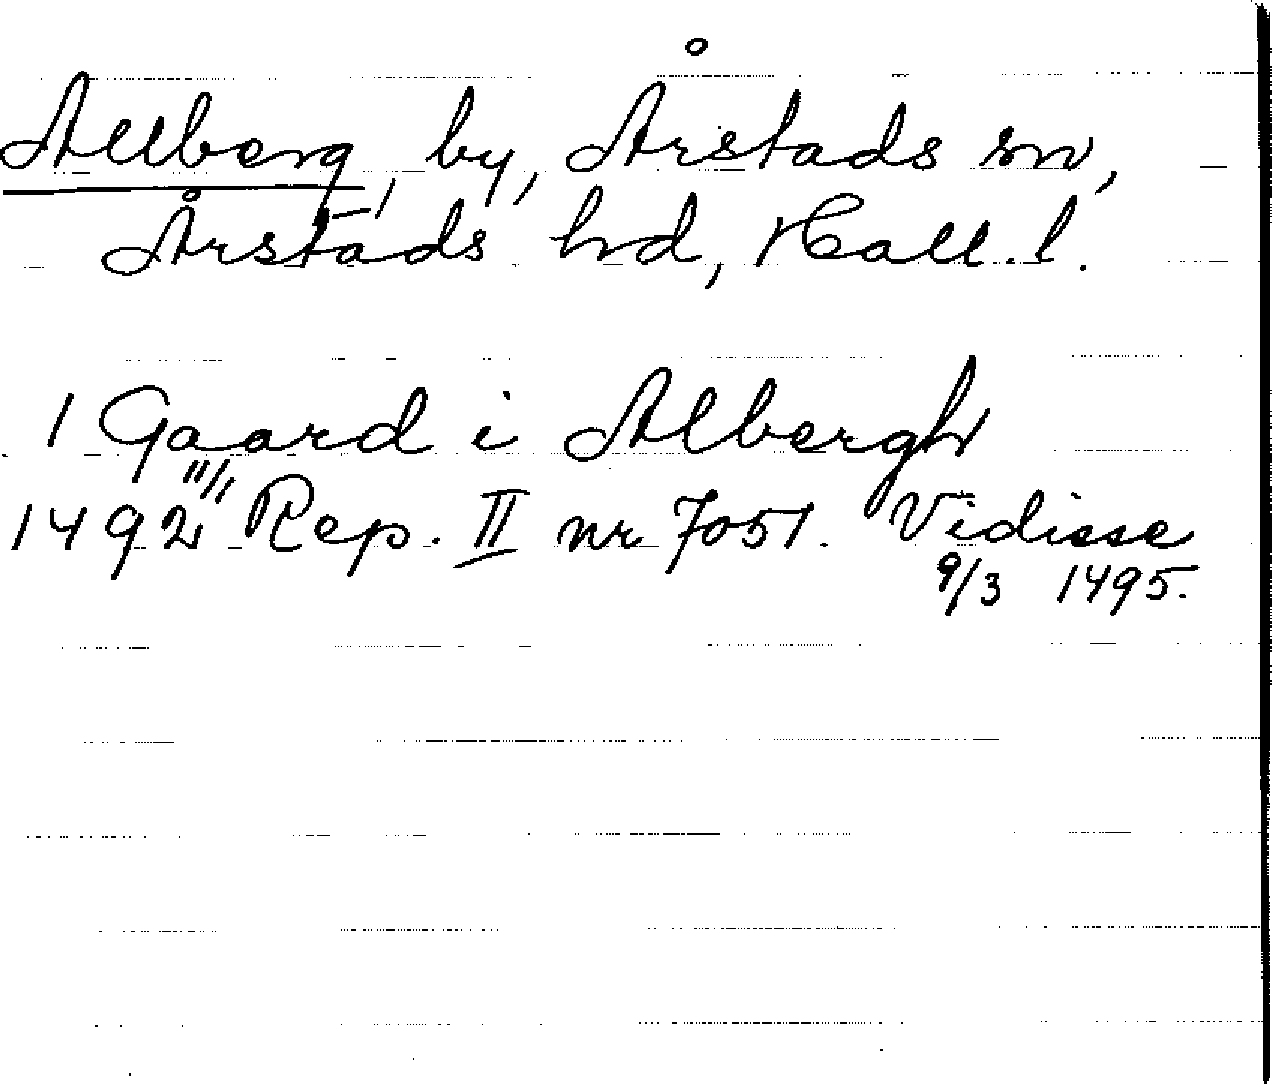 Allberg, by, Årstads sn,
Årstads hd, Hall. l.
1 Gaard i Albergh
11/1
1492 Rep. II nr 7051. Vidisse
9/3 1495.